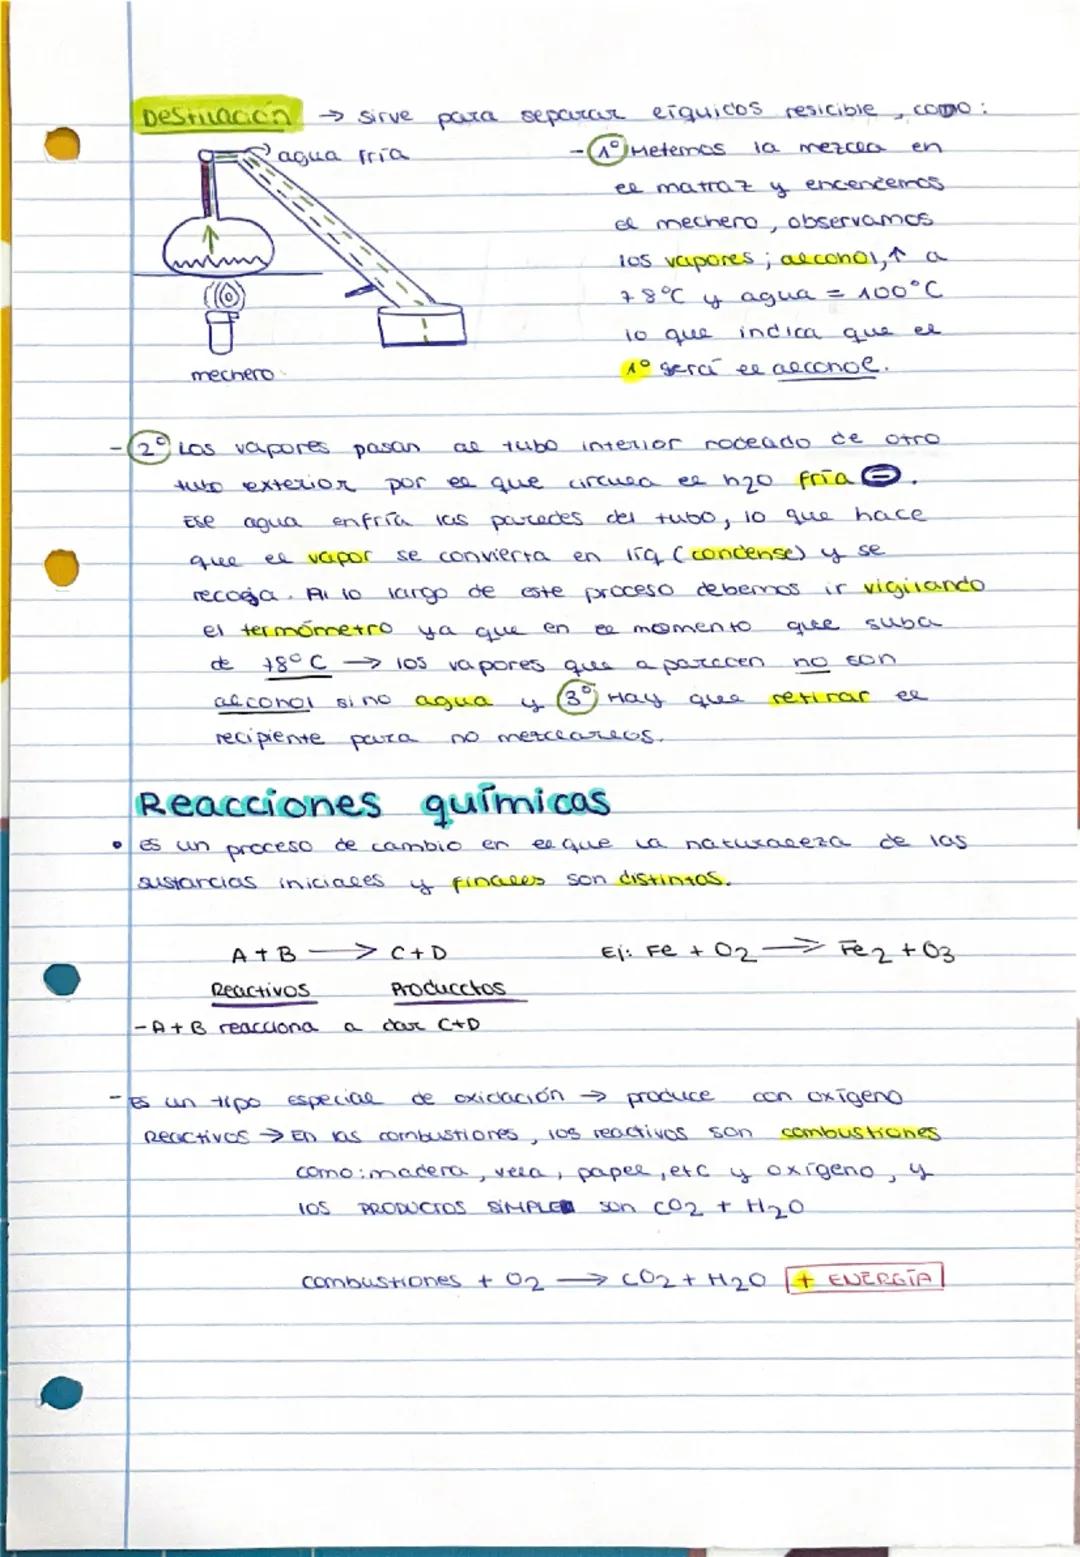 Destilación → sirve para separar líquidos resicible, como:
agua fría
- 1º Metemos la mezcla en
el matraz y encendemos
el mechero, observamos
los vapores; alcohol, ↑ a
78°C y agua = 100°C
lo que indica que el
1º será el alcohol.
mechero
- 2º Los vapores pasan al tubo interior rodeado de otro
tubo exterior por el que circula el h2o fría.
Ese agua enfría las paredes del tubo, lo que hace
que el vapor se convierta en líq (condense) y se
recoja. Al lo largo de este proceso debemos ir vigilando
el termómetro ya que en el momento que suba
de 78°C → los vapores que aparecen no son
alcohol sino agua y 3º Hay que retirar el
recipiente para no mezclarlos.
Reacciones químicas
• es un proceso de cambio en el que la naturaleza de las
sustancias iniciales y finales son distintas.
A + B → C + D Ej: Fe + O2 → Fe2 + O3
Reactivos Producctos
- A + B reacciona a dar C+D
- Es un tipo especial de oxidación → produce con oxígeno
Reactivos → En las combustiones, los reactivos son combustiones
como: madera, vela, papel, etc y oxígeno, y
los PRODUCTOS SIMPLE son CO2 + H2O
combustiones + O2 → CO2 + H2O + ENERGÍA